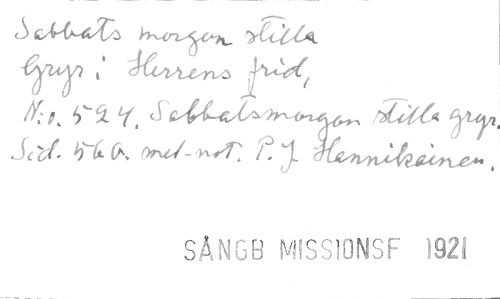 Sabbats morgon stilla
Gryr i Herrens frid,
N:o. 524. Sabbatsmorgon stilla gryr.
Sid. 560. mel-not. P. J. Hannikainen.
SÅNGB MISSIONSF 1921